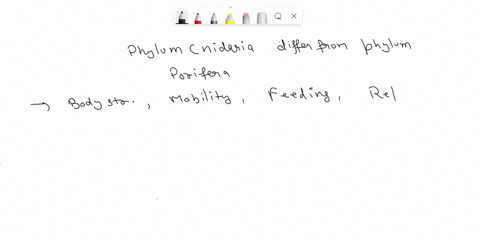 Phylum Cnideria differ from phylum
Porifera
→ Body str., Mobility, Feeding, Rel